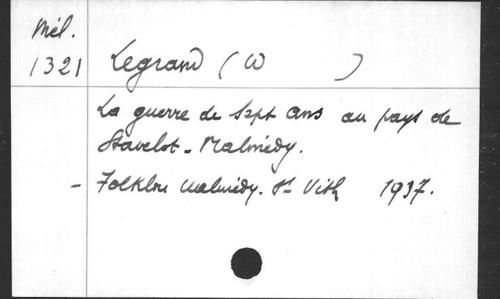 Mél.
1321 Legrand (W )
La guerre de Sept Ans au pays de
Stavelot - Malmédy.
- Folklore Malmédy. St Vith 1937.